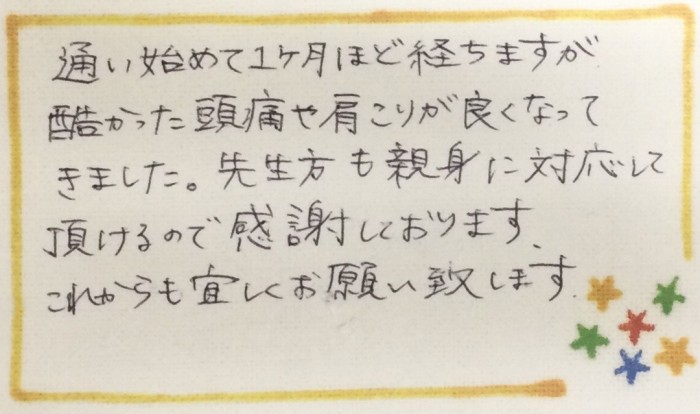 通い始めて1ヶ月ほど経ちますが
酷かった頭痛や肩こりが良くなって
きました。先生方も親身に対応して
頂けるので感謝しております、
これからも宜しくお願い致します.